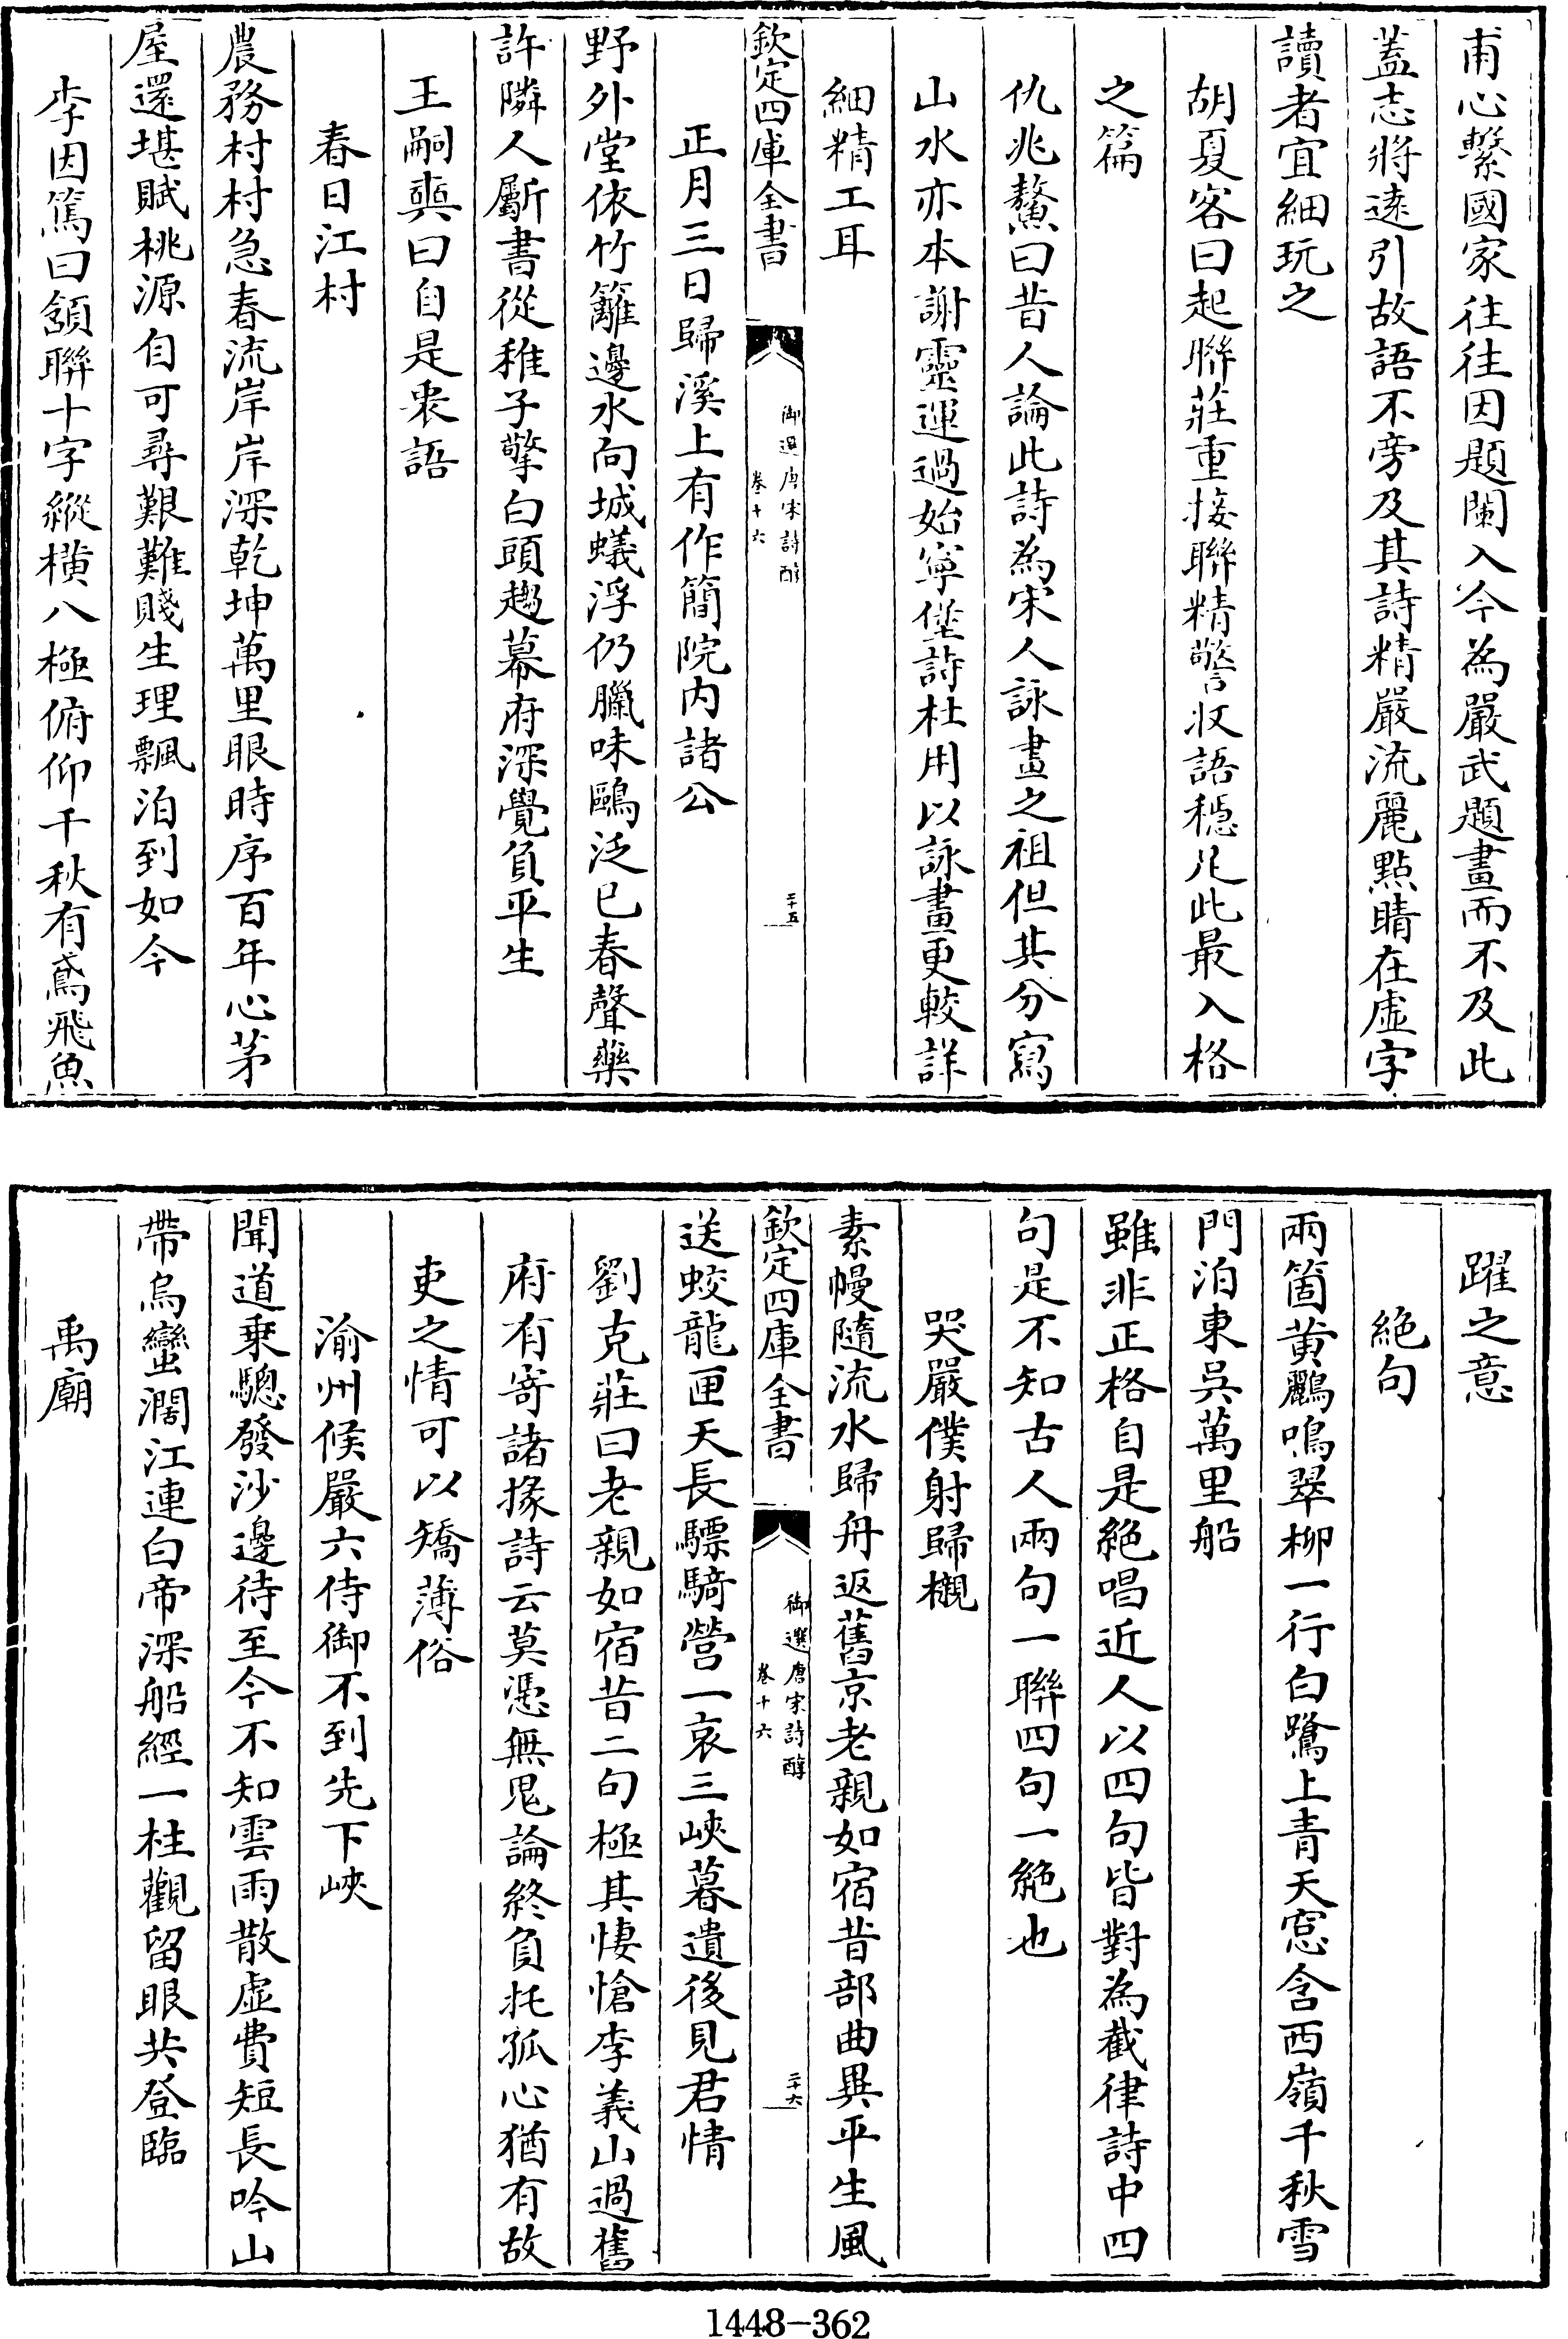 甫心繫國家往往因題闌入今為嚴武題畫而不及此
蓋志將遠引故語不旁及其詩精嚴流麗點睛在虛字
讀者宜細玩之
胡夏客曰起聨莊重接聨精警收語穩足此最入格
之篇
仇兆鰲曰昔人論此詩為宋人詠畫之祖但其分寫
山水亦本謝靈運過始寧墅詩杜用以詠畫更較詳
細精工耳
欽定四庫全書
御選唐宋詩醇
卷十六
二十五
正月三日歸溪上有作簡院内諸公
野外堂依竹籬邊水向城蟻浮仍臘味鷗泛已春聲藥
許隣人斸書從稚子擎白頭趨幕府深覺負平生
王嗣奭曰自是衷語
春日江村
農務村村急春流岸岸深乾坤萬里眼時序百年心茅
屋還堪賦桃源自可尋艱難賤生理飄泊到如今
李因篤曰頷聨十字縱横八極俯仰千秋有鳶飛魚
躍之意
絶句
兩箇黄鸝鳴翠柳一行白鷺上青天窓含西嶺千秋雪
門泊東吳萬里船
雖非正格自是絶唱近人以四句皆對為截律詩中四
句是不知古人兩句一聨四句一絶也
哭嚴僕射歸櫬
素幔隨流水歸舟返舊京老親如宿昔部曲異平生風
欽定四庫全書
御選唐宋詩醇
卷十六
二十六
送蛟龍匣天長驃騎營一哀三峽暮遺後見君情
劉克莊曰老親如宿昔二句極其悽愴李義山過舊
府有寄諸掾詩云莫憑無鬼論終負托孤心猶有故
吏之情可以矯薄俗
渝州候嚴六侍御不到先下峽
聞道乗驄發沙邊待至今不知雲雨散虛費短長吟山
帶烏蠻濶江連白帝深船經一柱觀留眼共登臨
禹廟
1448-362